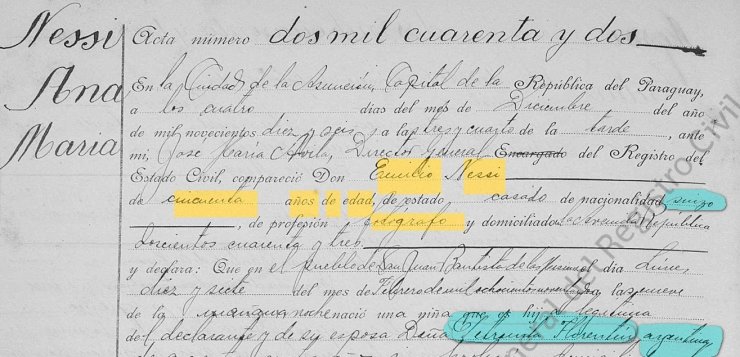 Nessi
Ana
Maria
Acta número dos mil cuarenta y dos
En la Ciudad de la Asunción, Capital de la República del Paraguay,
a los cuatro días del mes de Diciembre del año
de mil novecientos diez y seis a las tres y cuarto de la tarde, ante
mi, Jose Maria Director General Encargado del Registro del
Estado Civil, compareció Don Emilio Nessi
de cincuenta años de edad, de estado casado de nacionalidad suizo
, de profesión fotógrafo y domiciliado República
doscientos cuarenta y tres
y declara: Que en el pueblo de San Juan Bautista de las Misiones el dia Lunes
diez y siete del mes de Febrero de mil ochocientos noventa a las nueve
de la nació una niña que es hija legitima
del declarante y de su esposa Doña Petronila Florentin, argentina
General del Registro Civil